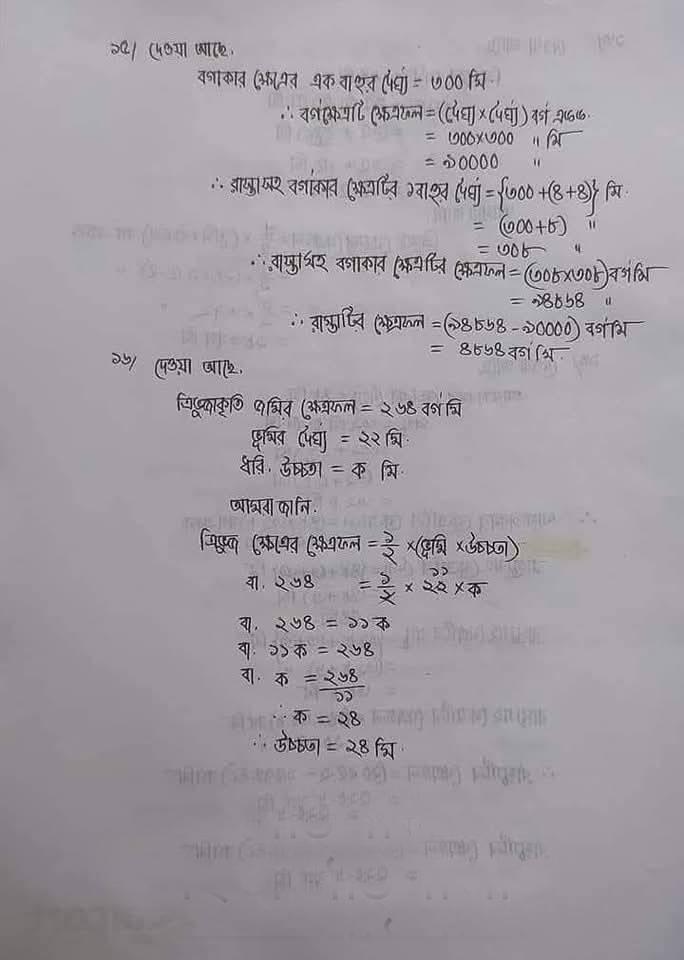 ১৫/ দেওয়া আছে,
বর্গাকার ক্ষেত্রের এক বাহুর দৈর্ঘ্য = ৩০০ মি.
∴ বর্গক্ষেত্রটি ক্ষেত্রফল = (দৈর্ঘ্য × দৈর্ঘ্য) বর্গ একক
= ৩০০×৩০০ " মি
= ৯০০০০ "
∴ রাস্তাসহ বর্গাকার ক্ষেত্রটির ১বাহুর দৈর্ঘ্য = {৩০০ + (৪+৪)} মি.
= (৩০০+৮) "
= ৩০৮ "
∴ রাস্তাসহ বর্গাকার ক্ষেত্রটির ক্ষেত্রফল = (৩০৮×৩০৮) বর্গ মি
= ৯৪৮৬৪ "
∴ রাস্তাটির ক্ষেত্রফল = (৯৪৮৬৪ - ৯০০০০) বর্গ মি
= ৪৮৬৪ বর্গ মি.
১৬/ দেওয়া আছে,
ত্রিভুজাকৃতি জমির ক্ষেত্রফল = ২৬৪ বর্গ মি
ভূমির দৈর্ঘ্য = ২২ মি.
ধরি, উচ্চতা = ক মি.
আমরা জানি,
ত্রিভুজ ক্ষেত্রের ক্ষেত্রফল = ১/২ × (ভূমি × উচ্চতা)
বা, ২৬৪ = ১/২ × ২২ ১১ × ক
বা, ২৬৪ = ১১ ক
বা, ১১ ক = ২৬৪
বা, ক = ২৬৪/১১
∴ ক = ২৪
∴ উচ্চতা = ২৪ মি.